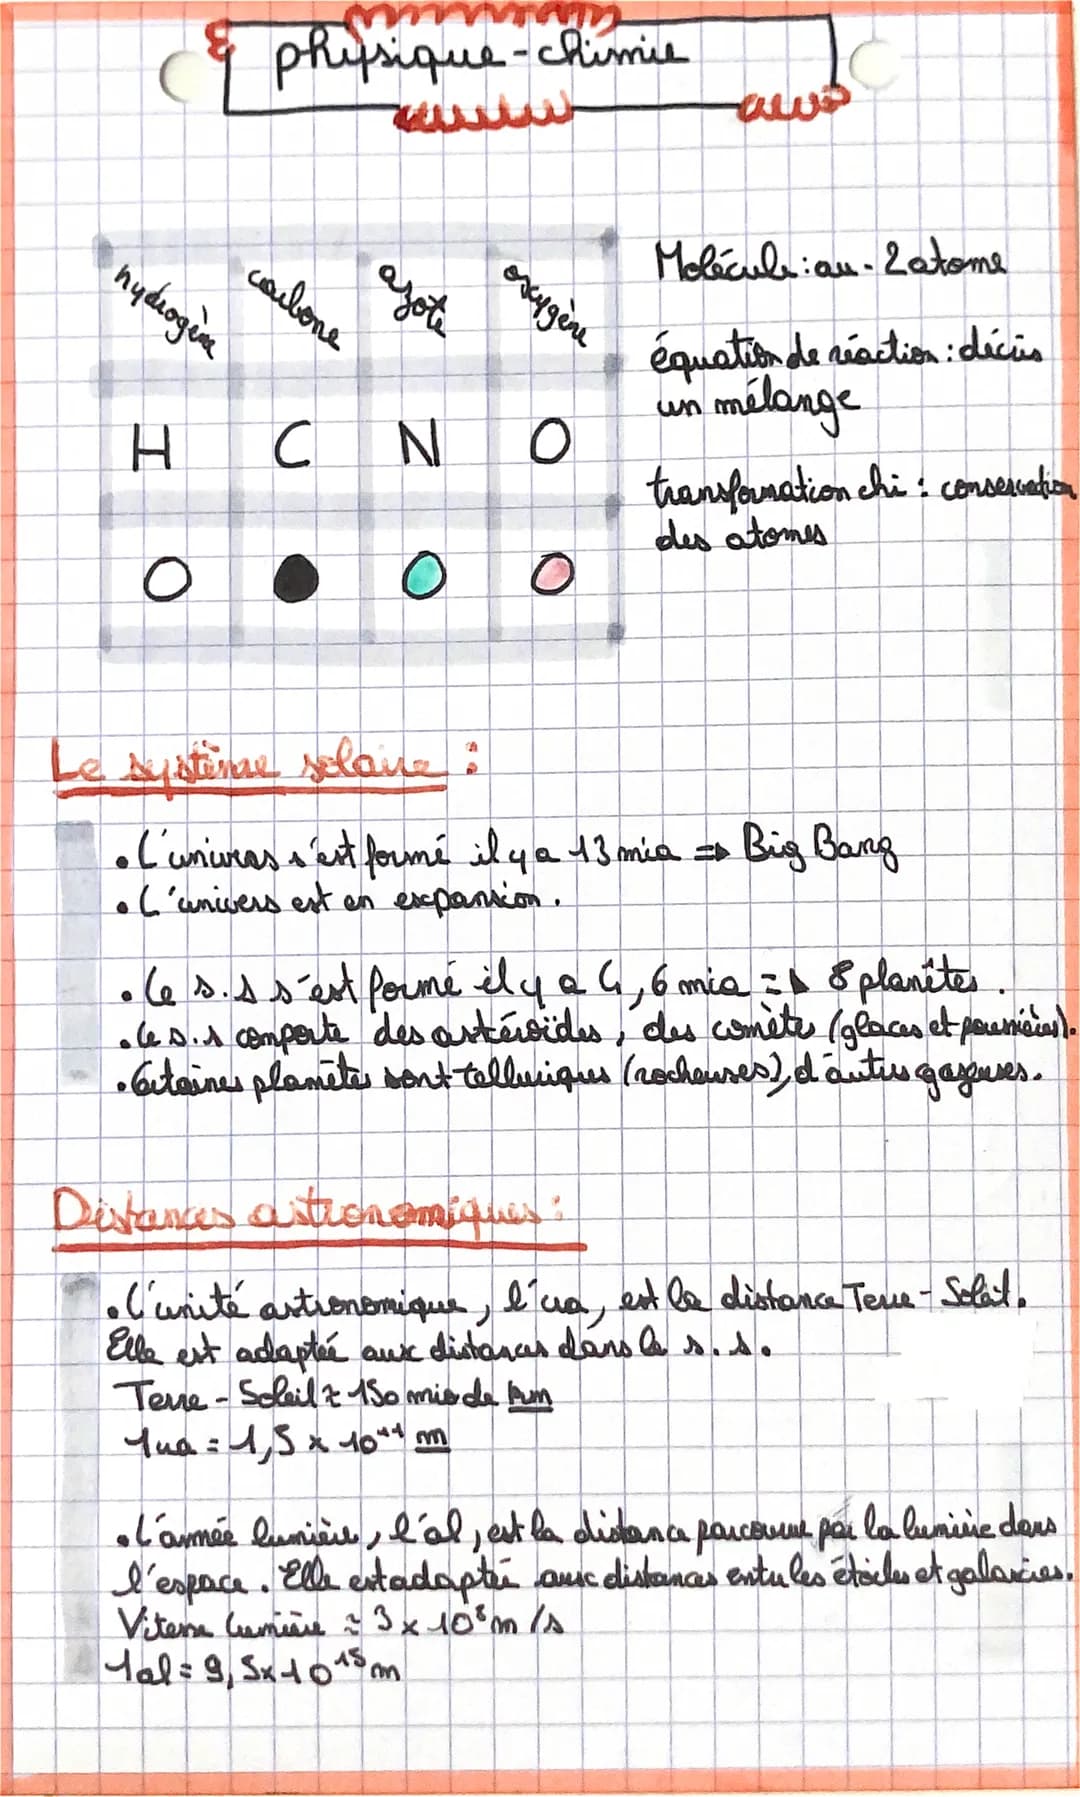 physique-chimie
hydrogène carbone azote oxygène
H C N O
Molécule : au - 2 atome
équation de réaction : décris
un mélange
transformation chi : conservation
des atomes
Le système solaire :
• L'univers s'est formé il y a 13 mia => Big Bang
• L'univers est en expansion.
• Le s.s s'est formé il y a 4,6 mia => 8 planètes.
• Le s.s comporte des astéroïdes, des comètes (glaces et poussières).
• Certaines planètes sont telluriques (rocheuses), d'autres gazeuses.
Distances astronomiques :
• L'unité astronomique, l'ua, est la distance Terre - Soleil.
Elle est adaptée aux distances dans le s.s.
Terre - Soleil ≈ 150 mio de km
1ua = 1,5 x 10¹¹ m
• L'année lumière, l'al, est la distance parcourue par la lumière dans
l'espace. Elle est adaptée aux distances entre les étoiles et galaxies.
Vitesse lumière ≈ 3 x 10⁸ m/s
1al = 9,5x10¹⁵ m